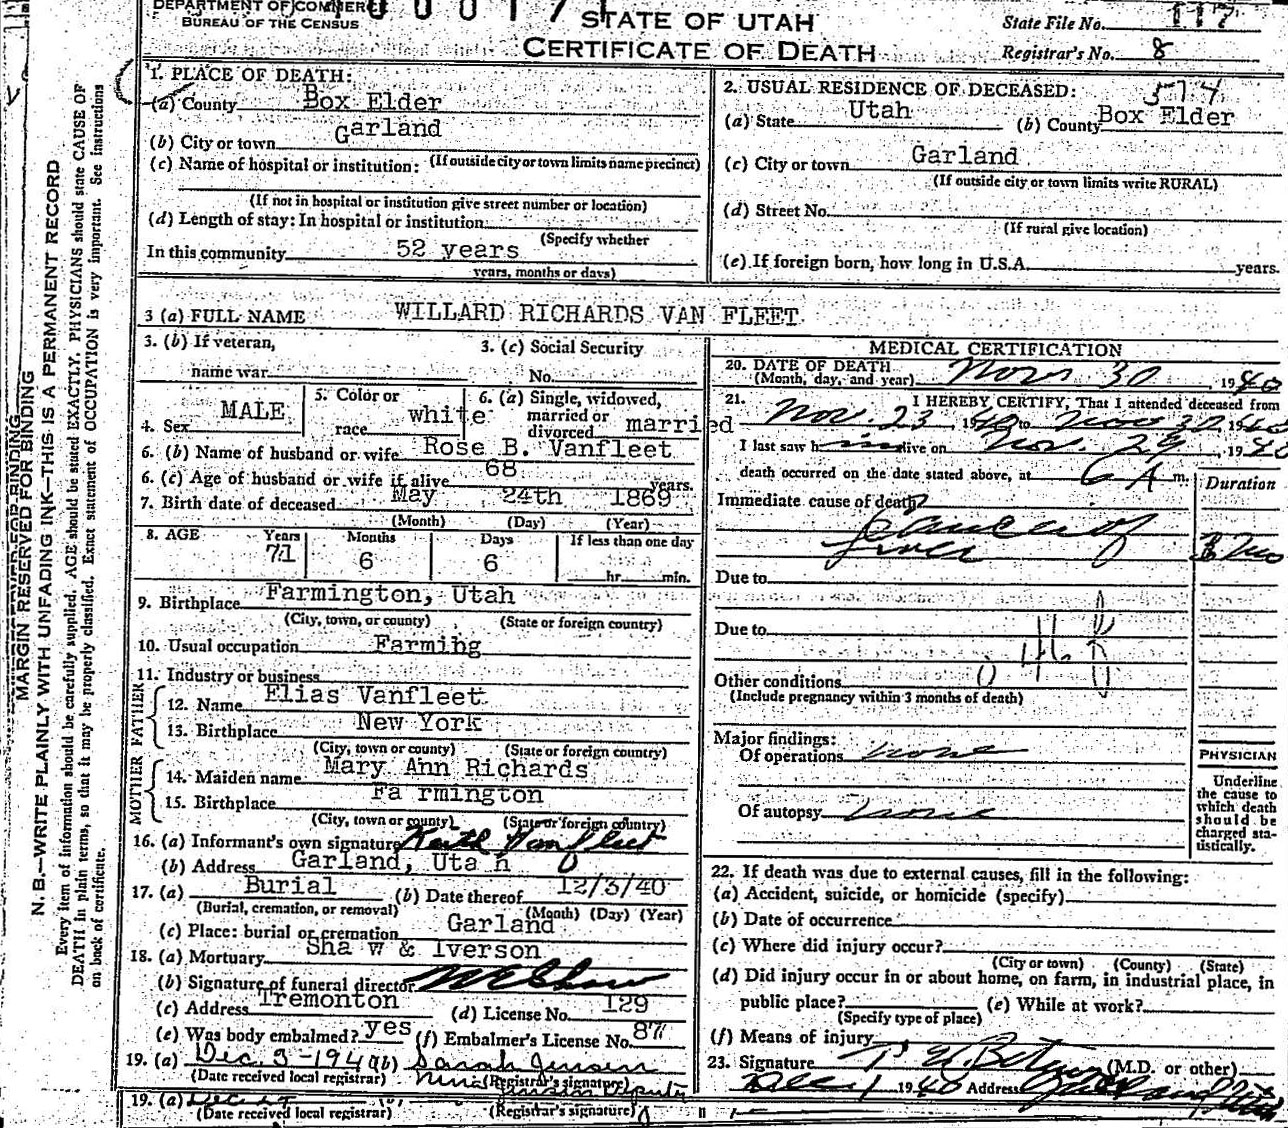 DEPARTMENT OF COMMERCE
BUREAU OF THE CENSUS
STATE OF UTAH
CERTIFICATE OF DEATH
State File No. 117
Registrar's No. 8
MARGIN RESERVED FOR BINDING
N. B.—WRITE PLAINLY WITH UNFADING INK—THIS IS A PERMANENT RECORD
Every item of information should be carefully supplied. AGE should be stated EXACTLY. PHYSICIANS should state CAUSE OF
DEATH in plain terms, so that it may be properly classified. Exact statement of OCCUPATION is very important. See instructions
on back of certificate.
1. PLACE OF DEATH:
(a) County Box Elder
(b) City or town Garland
(If outside city or town limits name precinct)
(c) Name of hospital or institution:
(If not in hospital or institution give street number or location)
(d) Length of stay: In hospital or institution
(Specify whether
In this community 52 years
years, months or days)
2. USUAL RESIDENCE OF DECEASED: 574
(a) State Utah (b) County Box Elder
(c) City or town Garland
(If outside city or town limits write RURAL)
(d) Street No.
(If rural give location)
(e) If foreign born, how long in U.S.A. years.
3 (a) FULL NAME WILLARD RICHARDS VAN FLEET
3. (b) If veteran,
name war
3. (c) Social Security
No.
4. Sex MALE
5. Color or
race white
6. (a) Single, widowed,
married or
divorced married
6. (b) Name of husband or wife Rose B. Vanfleet
6. (c) Age of husband or wife if alive 68 years.
7. Birth date of deceased May 24th 1869
(Month) (Day) (Year)
8. AGE Years 71 Months 6 Days 6 If less than one day
hr. min.
9. Birthplace Farmington, Utah
(City, town, or county) (State or foreign country)
10. Usual occupation Farmihg
11. Industry or business
FATHER
12. Name Elias Vanfleet
13. Birthplace New York
(City, town or county) (State or foreign country)
MOTHER
14. Maiden name Mary Ann Richards
15. Birthplace Fa rmington
(City, town or county) (State or foreign country)
16. (a) Informant's own signature Keith Vanfleet
(b) Address Garland, Uta h
17. (a) Burial (b) Date thereof 12/3/40
(Burial, cremation, or removal) (Month) (Day) (Year)
(c) Place: burial or cremation Garland
18. (a) Mortuary Sha w & Iverson
(b) Signature of funeral director
(c) Address Tremonton (d) License No. 129
(e) Was body embalmed? yes (f) Embalmer's License No. 87
19. (a) Dec. 3-1940 (b) Sarah Jensen
(Date received local registrar) (Registrar's signature)
Deputy
19. (a)
(Date received local registrar) (Registrar's signature)
MEDICAL CERTIFICATION
20. DATE OF DEATH
(Month, day, and year) Nov 30, 1940
21. I HEREBY CERTIFY, That I attended deceased from
Nov. 23 1940 to Nov 30, 1940
I last saw him alive on Nov. 29, 1940
death occurred on the date stated above, at 6 A m.
Duration
Immediate cause of death?
Due to
Due to
Other conditions
(Include pregnancy within 3 months of death)
Major findings:
Of operations none
Of autopsy none
PHYSICIAN
Underline
the cause to
which death
should be
charged sta-
tistically.
22. If death was due to external causes, fill in the following:
(a) Accident, suicide, or homicide (specify)
(b) Date of occurrence
(c) Where did injury occur?
(City or town) (County) (State)
(d) Did injury occur in or about home, on farm, in industrial place, in
public place? (e) While at work?
(Specify type of place)
(f) Means of injury
23. Signature (M.D. or other)
Dec 1 1940 Address Garland Utah